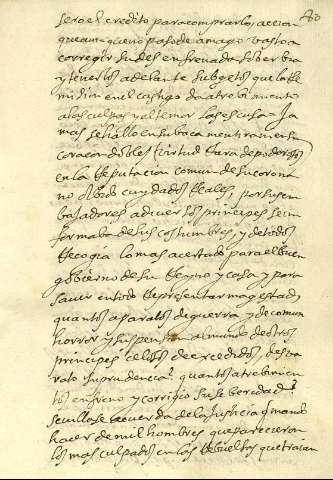 40
sero el credito para comprarlos, accion
que aunque no paso de amago basto a
corregir su desenfrenada soberbia
y tenerlos adelante subgetos que la
en el castigo da atrebimiento
a las culpas y el temor las escusa Ja
mas se hallo en su boca mentira ni en su
coraçon doblez Virtud Rara de poderosos
en la Reputacion comun de su corona
no cuydados Reales, por sus em
bajadores a diversos principes se in
formaba de sus costumbres, y de todos
Recogia lo mas acertado para el buen
gobierno de su Reyno y casa y para
saver en todo Representar magestad
quantos aparatos de guerra y de comun
horror y suspension al mundo de otros
principes desba
rato su prudencia? quantos atrebimien
tos enfreno y corrigio su severidad?
Sevilla se acuerda de la Justicia q mando
hacer de mil hombres que parecieron
los mas culpados en las Rebueltas que traian